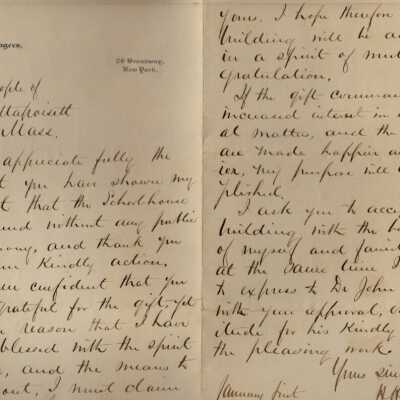 ogers,
26 Broadway,
New York.
ople of
Mattapoisett
Mass.
appreciate fully the
t you have shown my
t that the Schoolhouse
und without any public
mony, and thank you
kindly action.
confident that you
grateful for the gift, yet
reason that I have
blessed with the spirit
, and the means to
out, I must claim
yours. I hope therefor
building will be ac
in a spirit of mut
gratulation.
If the gift commun
increased interest in
at matters, and the
are made happier a
my purpose will
plished.
I ask you to acce
building with the b
of myself and fami
at the same time I
to express to Dr John
with your approval, o
itude for his kindly
the pleasing work.
Yours Sin
January first
H. H.